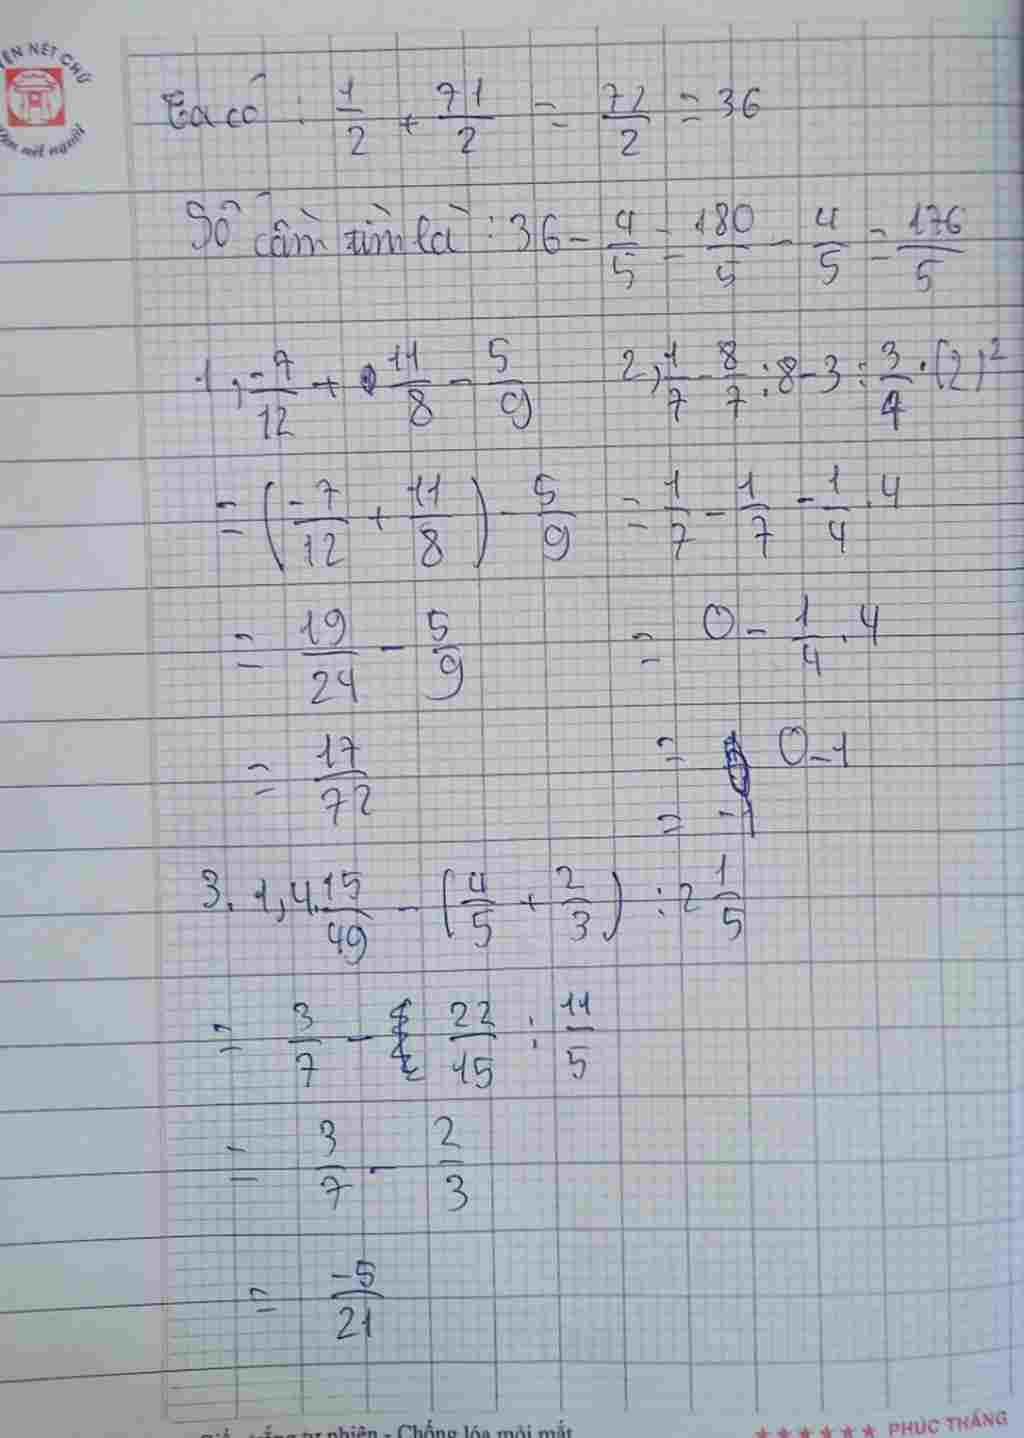 ÈN NÉT CHỮ
Ta có : 1/2 + 71/2 = 72/2 = 36
Số cần tìm là : 36 - 4/5 = 180/5 - 4/5 = 176/5
1, -7/12 + 11/8 - 5/9
= (-7/12 + 11/8) - 5/9
= 19/24 - 5/9
= 17/72
2, 1/7 - 8/7 : 8 - 3 : 3/4 . (2)²
= 1/7 - 1/7 - 1/4 . 4
= 0 - 1/4 . 4
= 0 - 1
= -1
3. 1,4 . 15/49 - (4/5 + 2/3) : 2 1/5
= 3/7 - 22/15 : 11/5
= 3/7 - 2/3
= -5/21
tự nhiên - Chống lóa mỏi mắt
★★★★★★ PHÚC THẮNG